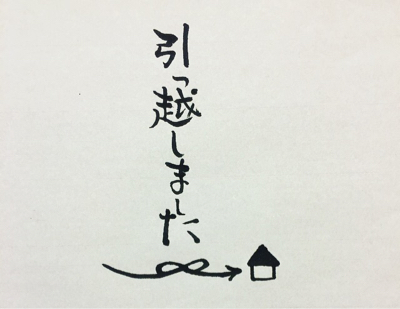 引っ越しました